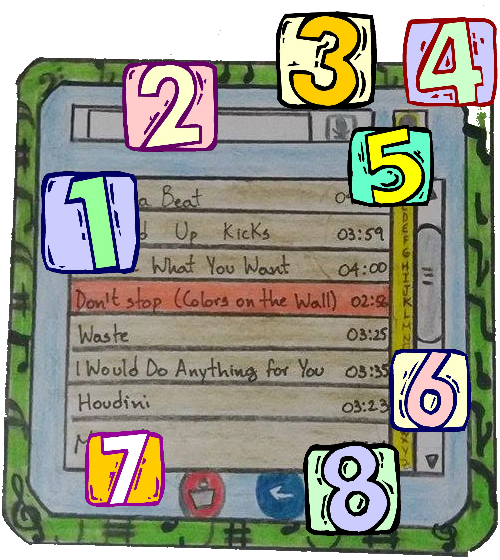 3
4
2
5
1
a Beat
Up Kicks 03:59
What You Want 04:00
Don't stop (Colors on the Wall) 02:56
Waste 03:25
I Would Do Anything for You 03:35
Houdini 03:23
6
7
8
D
E
F
G
H
I
J
K
L